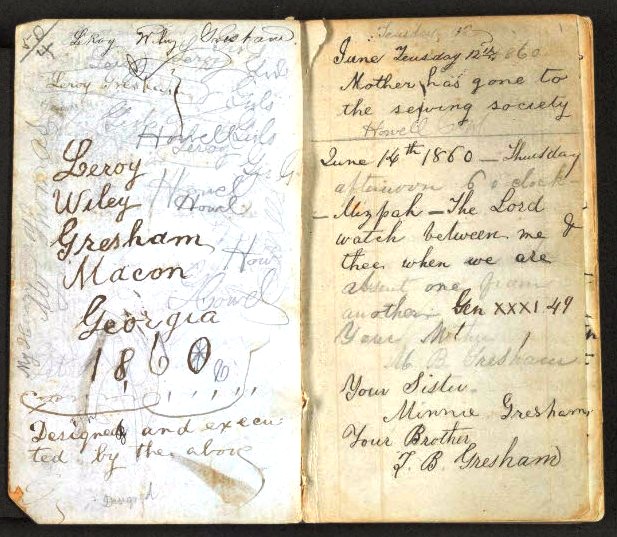 LeRoy Wiley Gresham
Leroy Gresham
Girls
Girls
Howell Girls
Leroy
Howell
Leroy
Wiley Howel
Gresham
Macon
Howel
Georgia
1860
Designed and execu
ted by the above
Designed
Tuesday
June Teusday 12th 1860
Mother has gone to
the sewing society
Howell
June 14th 1860 — Thursday
afternoon 6 o clock
— Mizpah — The Lord
watch between me &
thee when we are
absent one from
another. Gen XXXI-49
Your Mother
M. B. Gresham
Your Sister
Minnie Gresham
Your Brother
T. B. Gresham